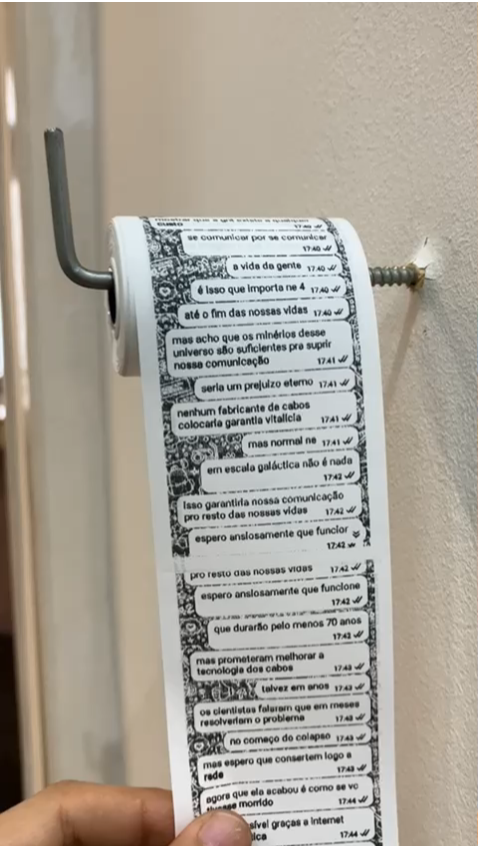 mostrar que a gnt existe a qualquer
custo 17:40
se comunicar por se comunicar
17:40
a vida da gente 17:40
é isso que importa né 4 17:40
até o fim das nossas vidas 17:40
mas acho que os minérios desse
universo são suficientes pra suprir
nossa comunicação 17:41
seria um prejuízo eterno 17:41
nenhum fabricante de cabos
colocaria garantia vitalícia 17:41
mas normal né 17:41
em escala galáctica não é nada
17:42
isso garantiria nossa comunicação
pro resto das nossas vidas 17:42
espero ansiosamente que funcior
17:42
pro resto das nossas vidas 17:42
espero ansiosamente que funcione
17:42
que durarão pelo menos 70 anos
17:42
mas prometeram melhorar a
tecnologia dos cabos 17:43
talvez em anos 17:43
os cientistas falaram que em meses
resolveriam o problema 17:43
no começo do colapso 17:43
mas espero que consertem logo a
rede 17:43
agora que ela acabou é como se vc
morrido 17:44
sível graças a internet
17:44